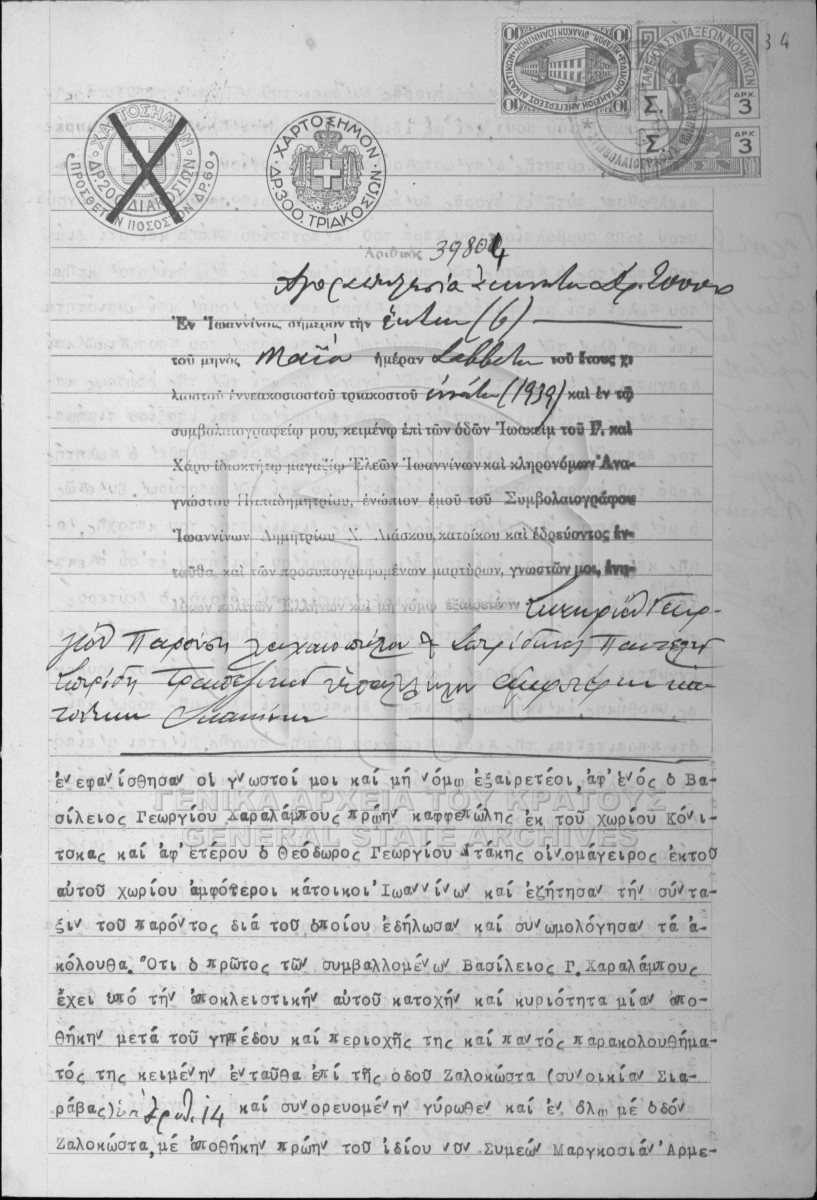 34
ΕΙΔΙΚΟΝ ΤΑΜΕΙΟΝ ΑΝΕΓΕΡΣΕΩΣ ΔΙΔΑΚΤΗΡΙΩΝ
10 10
10 10
ΤΑΜΕΙΟΝ ΣΥΝΤΑΞΕΩΝ ΝΟΜΙΚΩΝ
Σ. ΔΡΧ. 3
Σ ΔΡΧ. 3
ΧΑΡΤΟΣΗΜΟΝ
ΔΡ200 ΔΙΑΚΟΣΙΩΝ
ΠΡΟΣΘΕΤΟΝ ΠΟΣΟΣΤΟΝ ΔΡ.60
ΧΑΡΤΟΣΗΜΟΝ
ΔΡ300. ΤΡΙΑΚΟΣΙΩΝ
Ἀριθμὸς 39804
Ἀγοραπωλησία ἀκινήτου Δρ.
Ἐν Ἰωαννίνοις σήμερον τὴν ἕκτην (6)
τοῦ μηνὸς Μαΐου ἡμέραν Σάββατον τοῦ ἔτους χι
λιοστοῦ ἐννεακοσιοστοῦ τριακοστοῦ ἐνάτου (1939) καὶ ἐν τῷ
συμβολαιογραφείῳ μου, κειμένῳ ἐπὶ τῶν ὁδῶν Ἰωακεὶμ τοῦ Γ΄. καὶ
Χάρυ ἰδιοκτήτῳ μαγαζίῳ Ἐλεῶν Ἰωαννίνων καὶ κληρονόμων Ἀνα-
γνώστου Παπαδημητρίου, ἐνώπιον ἐμοῦ τοῦ Συμβολαιογράφου
Ἰωαννίνων Δημητρίου Χ. Λιάσκου, κατοίκου καὶ ἑδρεύοντος ἐν-
ταῦθα, καὶ τῶν προσυπογραφομένων μαρτύρων, γνωστῶν μοι, ἐνη-
λίκων πολιτῶν Ἑλλήνων καὶ μὴ νόμῳ ἐξαιρετέων Σωτηρίου Γεωρ-
γίου Παρούση λαχανοπώλου & Σπυρίδωνος Παντελῆ
Σπυρίδη τραπεζικοῦ ὑπαλλήλου ἀμφοτέρων κα-
τοίκων Ἰωαννίνων
ἐνεφανίσθησαν οἱ γνωστοί μοι καί μή νόμῳ ἐξαιρετέοι, ἀφ' ἑνός ὁ Βα-
σίλειος Γεωργίου Χαραλάμπους πρώην καφφεπώλης ἐκ τοῦ χωρίου Κόνι-
τσκας καί ἀφ' ἑτέρου ὁ Θεόδωρος Γεωργίου Ντάκης οἰνομάγειρος ἐκτοῦ
αὐτοῦ χωρίου ἀμφότεροι κάτοικοι Ἰωαννίνων καί ἐζήτησαν τήν σύντα
ξιν τοῦ παρόντος διά τοῦ ὁποίου ἐδήλωσαν καί συνωμολόγησαν τά ἀ-
κόλουθα. Ὅτι ὁ πρῶτος τῶν συμβαλλομένων Βασίλειος Γ. Χαραλάμπους
ἔχει ὑπό τήν ἀποκλειστικήν αὐτοῦ κατοχήν καί κυριότητα μίαν ἀπο-
θήκην μετά τοῦ γηπέδου καί περιοχῆς της καί παντός παρακολουθήμα-
τός της κειμένην ἐνταῦθα ἐπί τῆς ὁδοῦ Ζαλοκώστα (συνοικίαν Σια-
ράβας) ὑπ' ἀριθ. 14 καί συνορευομένην γύρωθεν καί ἐν ὅλῳ μέ ὁδόν
Ζαλοκώστα, μέ ἀποθήκην πρώην τοῦ ἰδίου νῦν Συμεών Μαργκοσιάν Ἀρμε-
ΓΕΝΙΚΑ ΑΡΧΕΙΑ ΤΟΥ ΚΡΑΤΟΥΣ
GENERAL STATE ARCHIVES